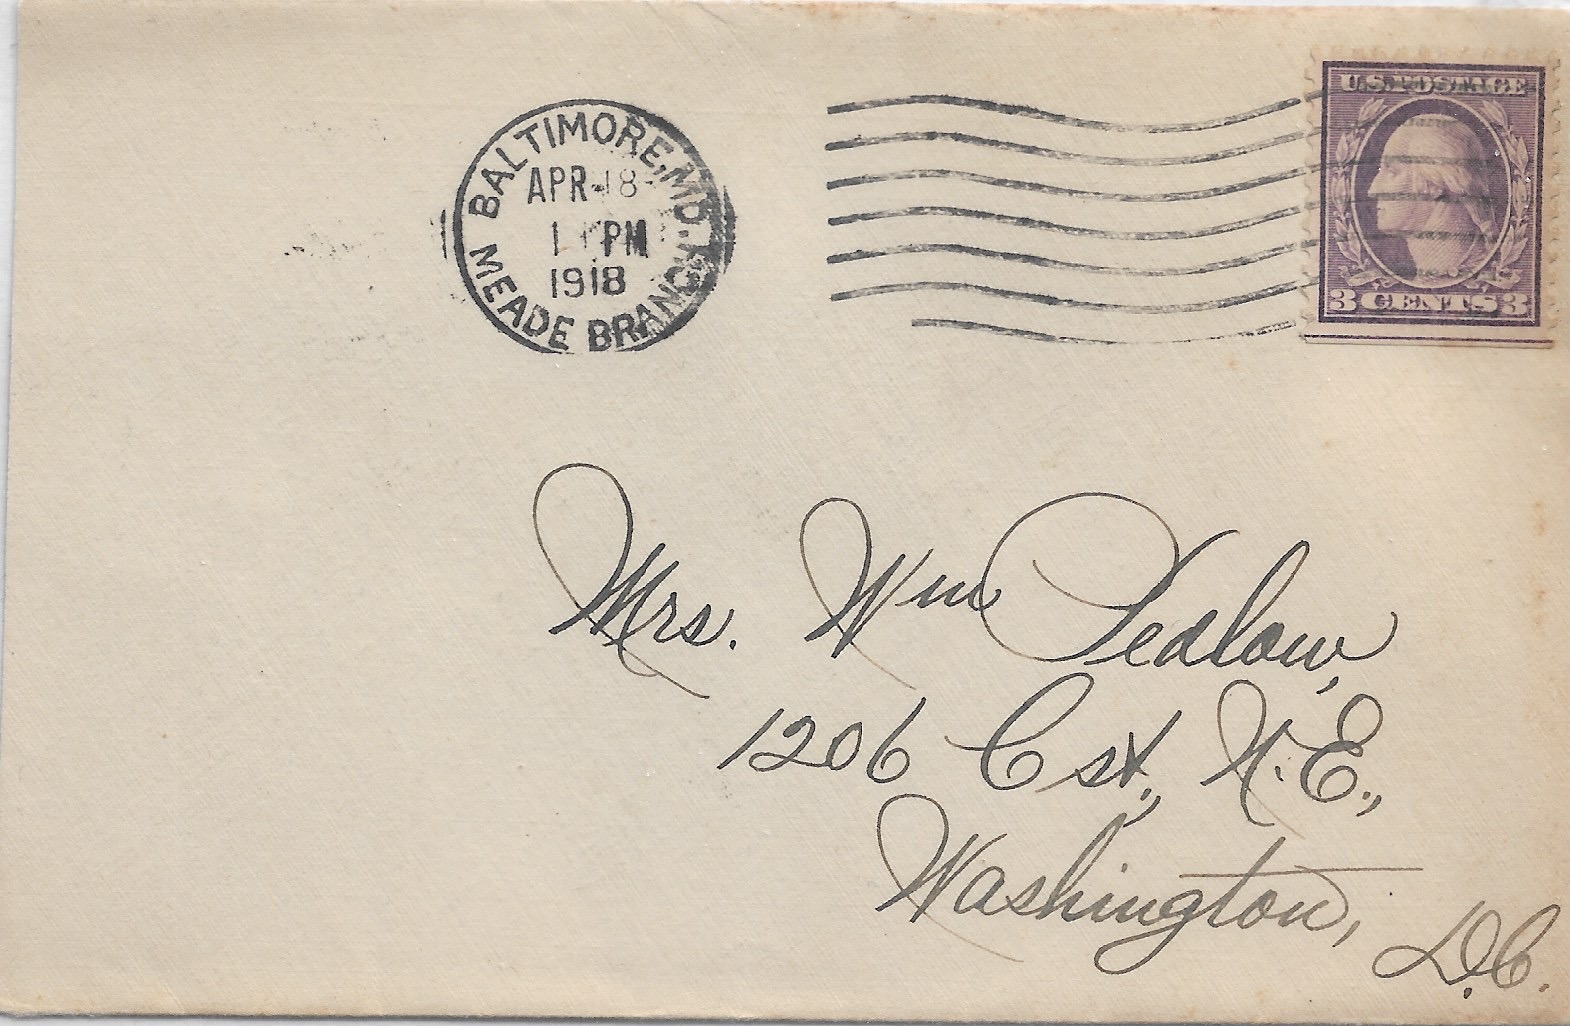 BALTIMORE, MD.
APR 18
PM
1918
MEADE BRANCH
U.S. POSTAGE
3 CENTS 3
Mrs. Wm Pedlow,
1206 C st., N.E.,
Washington, D.C.